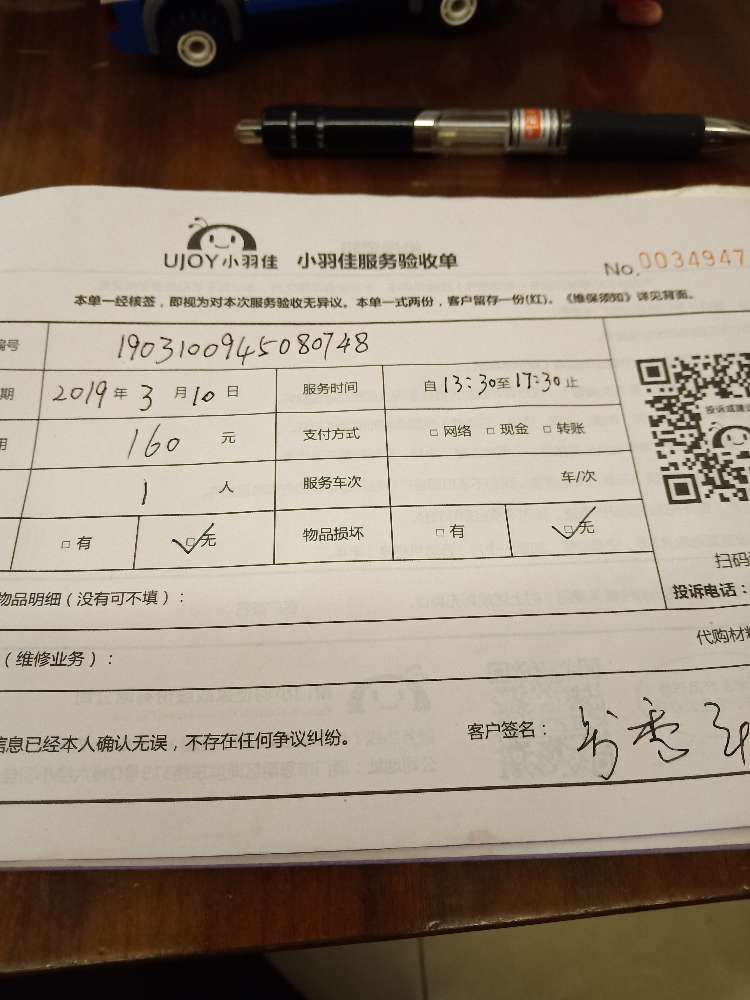 UJOY小羽佳 小羽佳服务验收单
No.0034947
本单一经核签，即视为对本次服务验收无异议。本单一式两份，客户留存一份(红)。《维保须知》详见背面。
编号 1903100945080748
期 2019年3月10日 服务时间 自13:30至17:30止
用 160元 支付方式 □网络 □现金 □转账
1人 服务车次 车/次
□有 □无 物品损坏 □有 □无
投诉或建议
扫码
物品明细（没有可不填）：
投诉电话：
代购材料
（维修业务）：
信息已经本人确认无误，不存在任何争议纠纷。
客户签名：